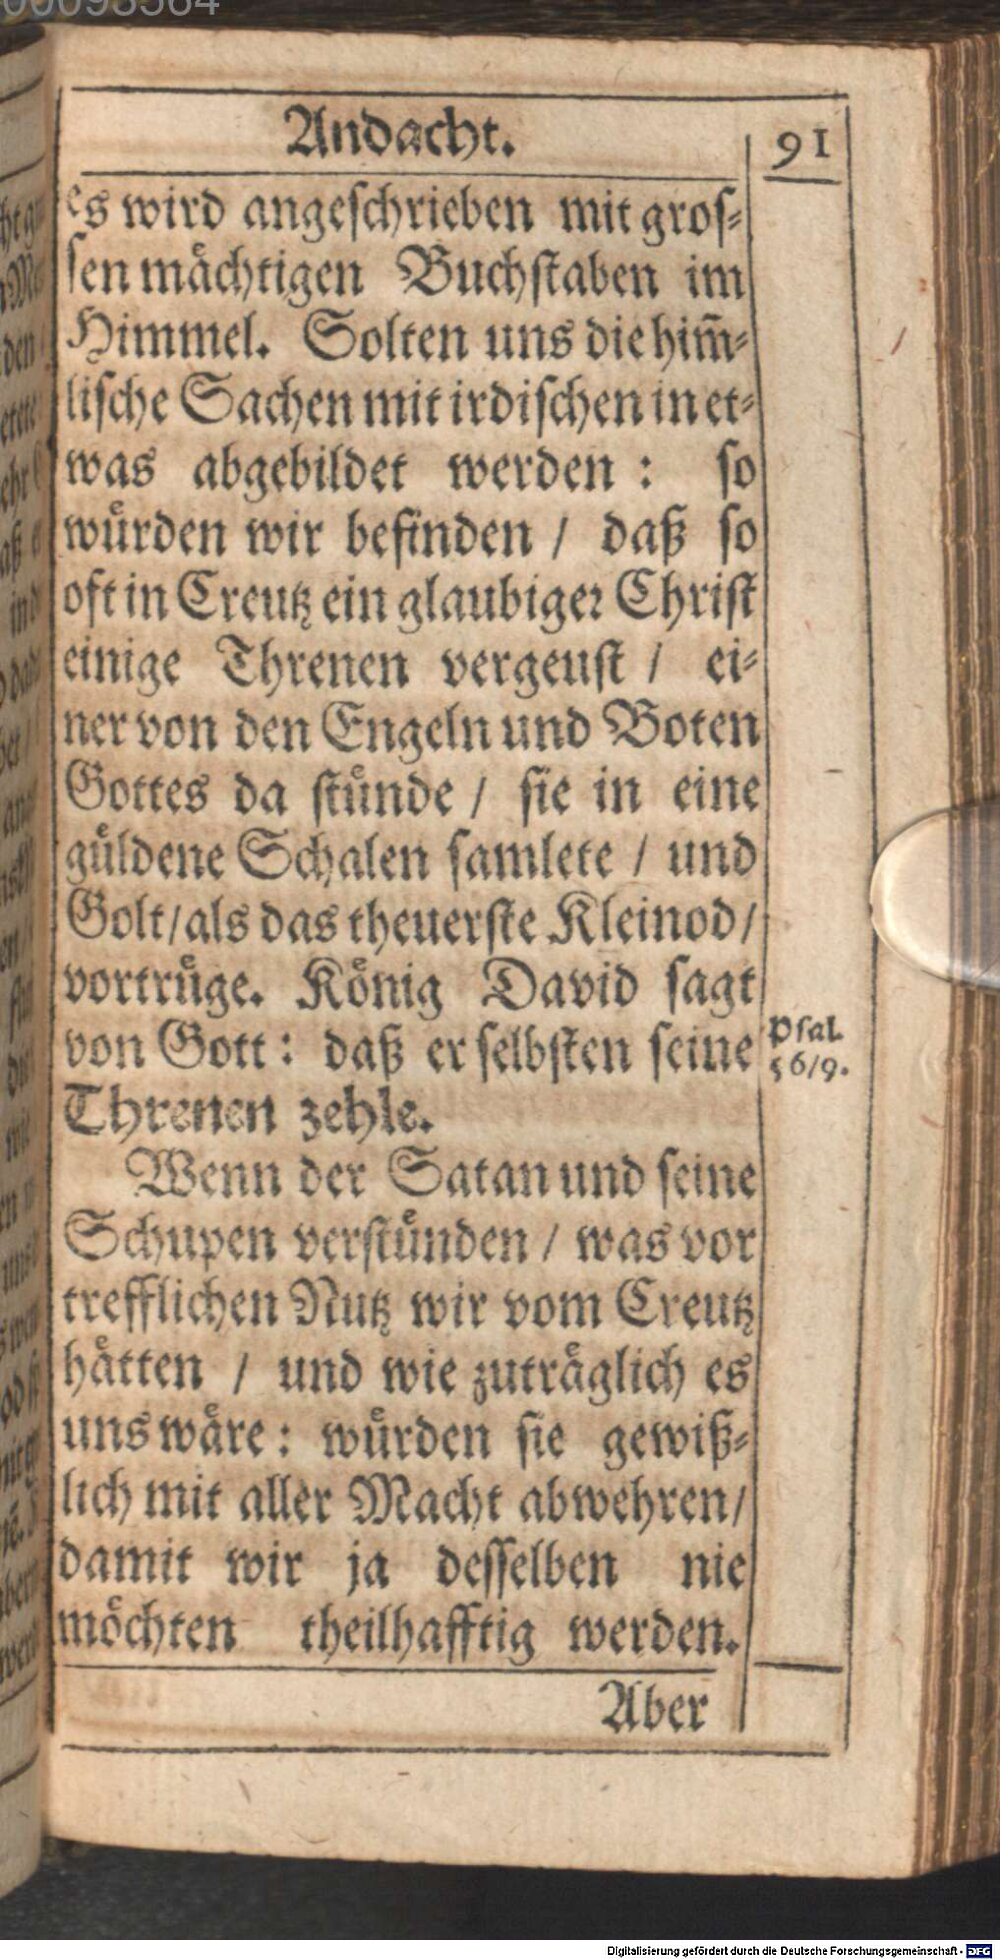 00098564
Andacht.
91
es wird angeſchrieben mit groſ⸗
ſen maͤchtigen Buchſtaben im
Himmel. Solten uns die him̃⸗
liſche Sachen mit irdiſchen in et⸗
was abgebildet werden : ſo
wuͤrden wir befinden / daß ſo
oft in Creutz ein glaubiger Chriſt
einige Threnen vergeuſt / ei⸗
ner von den Engeln und Boten
Gottes da ſtuͤnde / ſie in eine
guͤldene Schalen ſamlete / und
Golt / als das theuerſte Kleinod /
vortruͤge. Koͤnig David ſagt
von Gott : daß er ſelbſten ſeine
Pſal.
56/9.
Threnen zehle.
Wenn der Satan und ſeine
Schupen verſtuͤnden / was vor
trefflichen Nutz wir vom Creutz
haͤtten / und wie zutraͤglich es
uns waͤre : wuͤrden ſie gewiß⸗
lich mit aller Macht abwehren /
damit wir ja deſſelben nie
moͤchten theilhafftig werden.
Aber
Digitalisierung gefördert durch die Deutsche Forschungsgemeinschaft - DFG